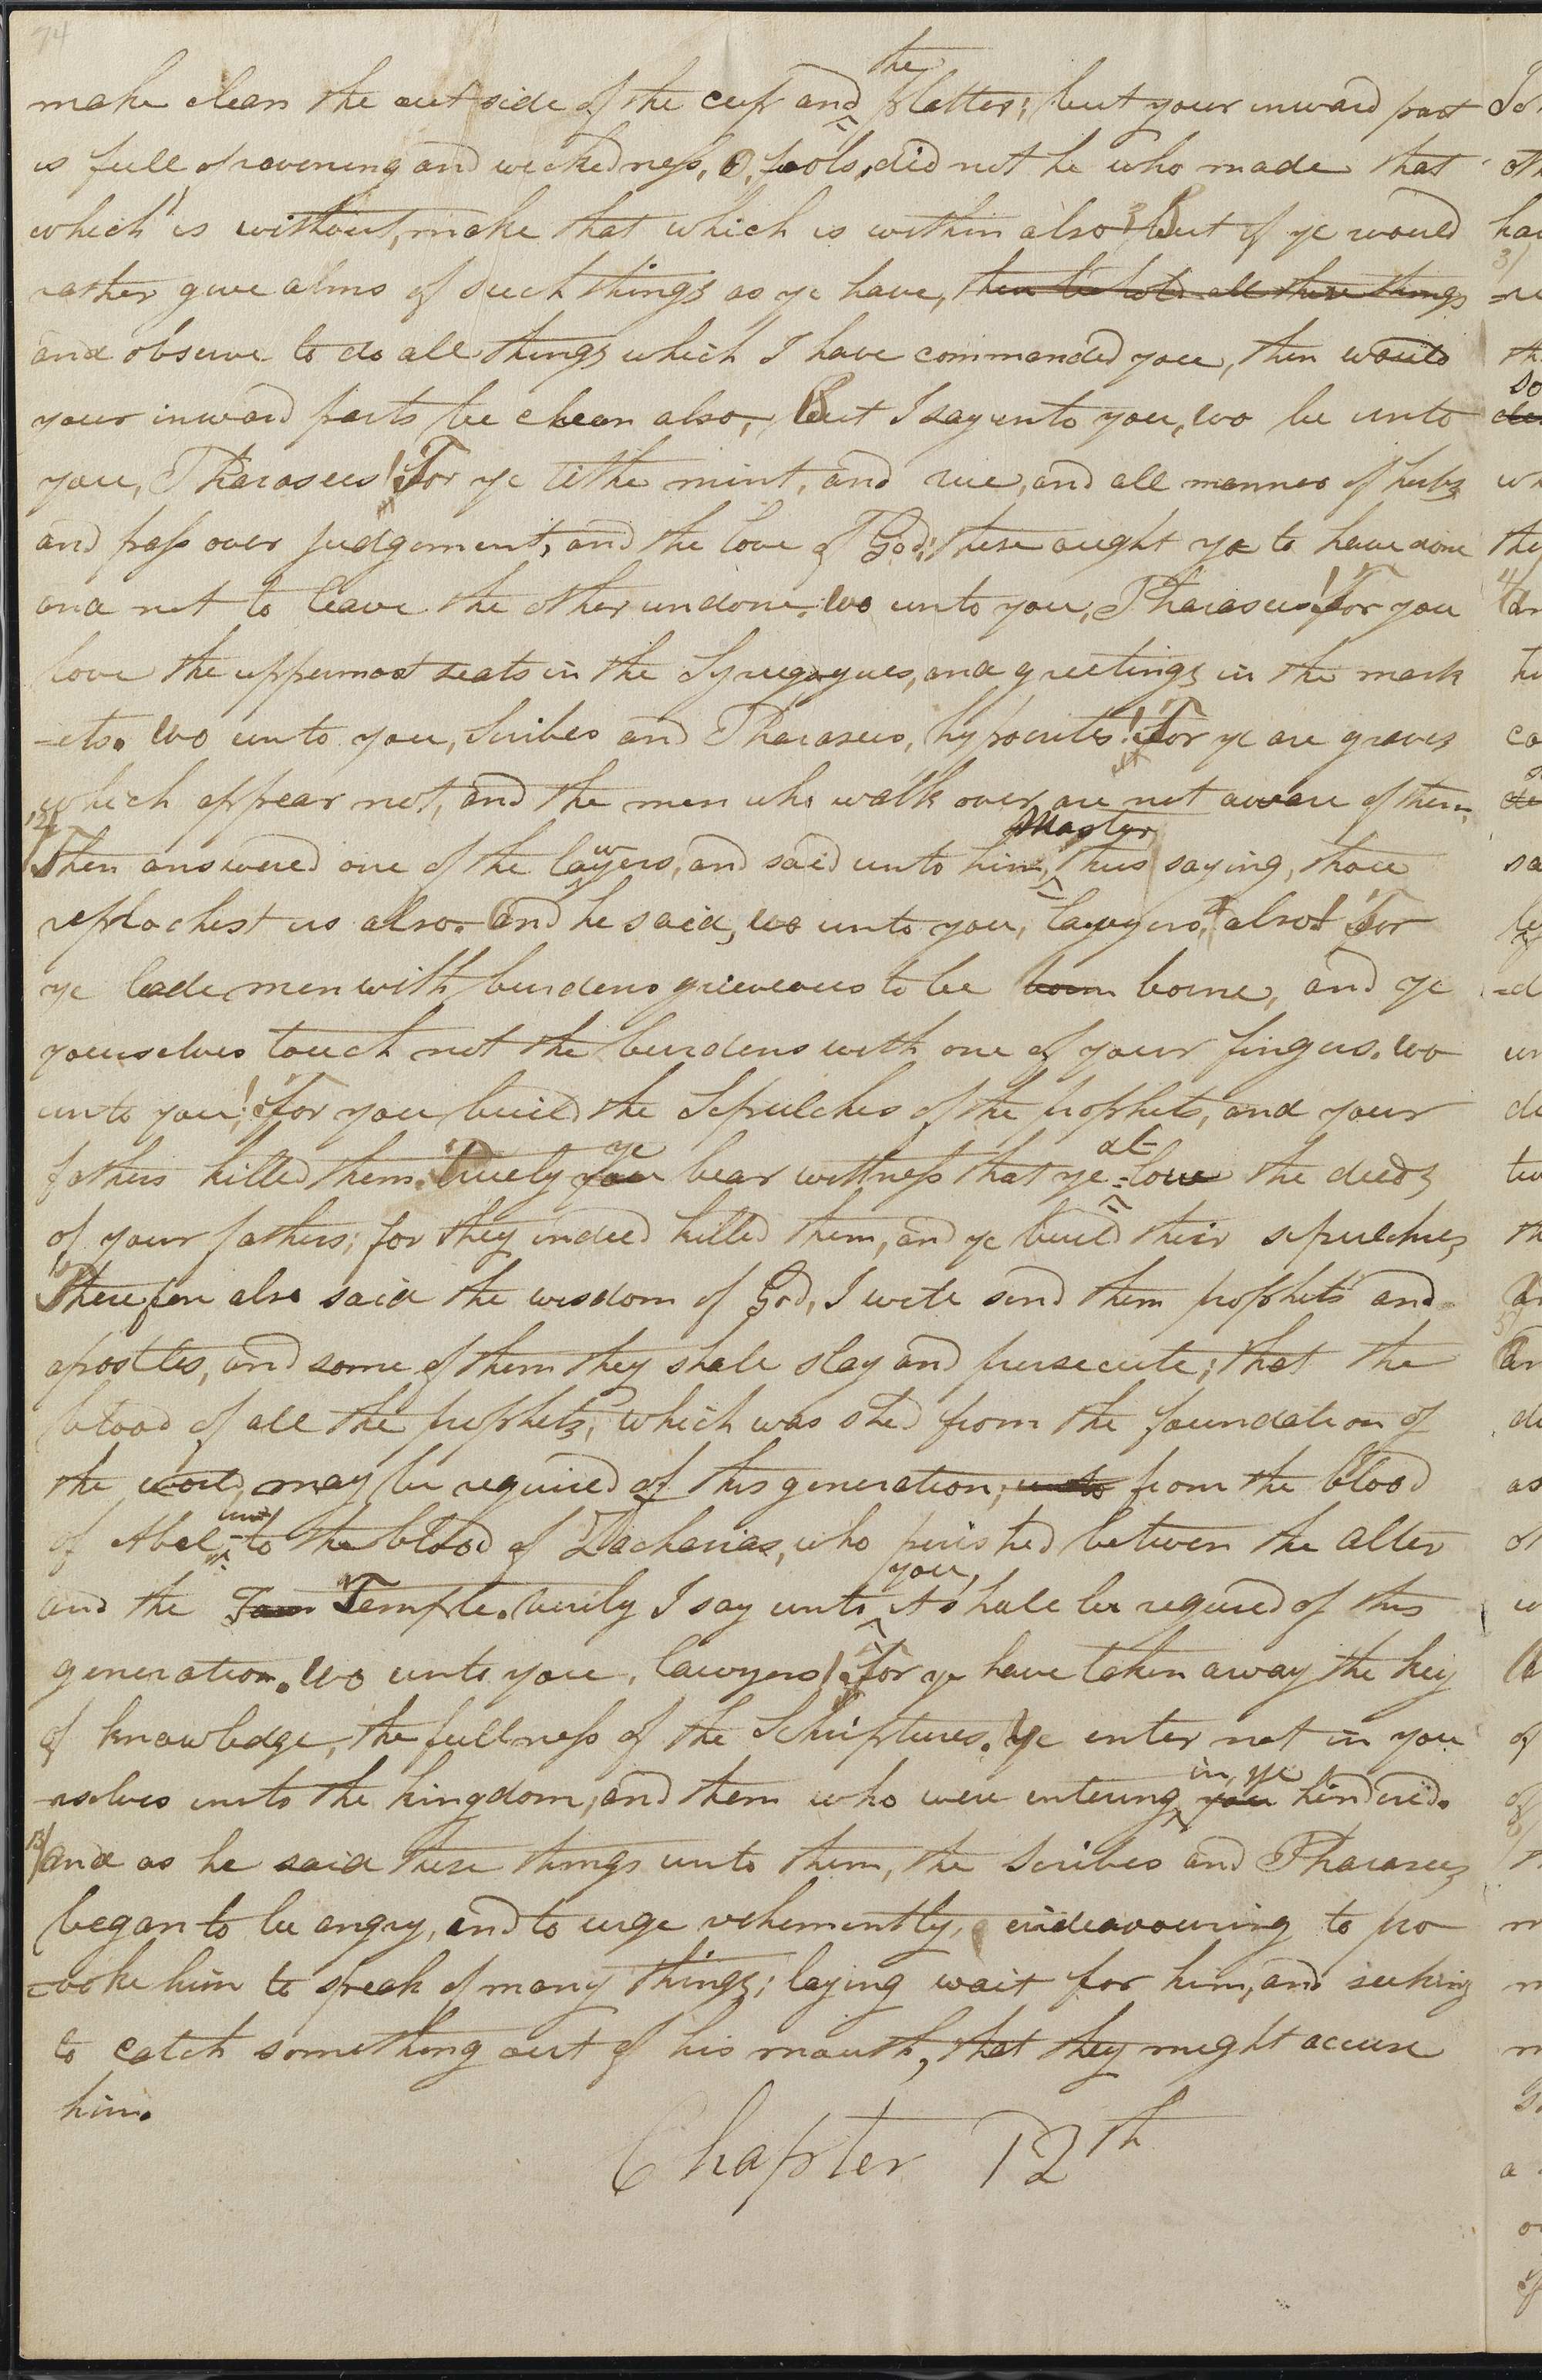 74
make clean the out side of the cup and the platter; but your inward part
is full of ravening and wickedness, O, fools, did not he who made that
which is without, make that which is within also? But if ye would
rather give alms of such things as ye have, then behold all these things
and observe to do all things which I have commanded you, then would
your inward parts be clean also, But I say unto you, wo be unto
you, Pharasees! For ye tithe mint, and rue, and all manner of herbs
and pass over judgement, and the love of God; these aught ye to have done
and not to leave the other undone. Wo unto you, Pharasees! For you
love the uppermost seats in the Synagogues, and greetings in the mark
-ets. Wo unto you, Scribes and Pharasees, hypocrites! For ye are graves
which appear not, and the men who walk over are not aware of them.
12/ Then answered one of the lawyers, and said unto him, Master, thus saying, thou
reprochest us also. And he said, wo unto you, lawyers, also! For
ye lade men with burdens grieveous to be born borne, and ye
yourselves touch not the burdens with one of your fingers. Wo
unto you! For you build the Sepulchers of the prophets, and your
fathers killed them. Truely you ye bear wittness that ye al=low the deeds
of your fathers; for they indeed killed them, and ye build their sepulchres
Therefore also said the wisdom of God, I will send them prophets and
apostles, and some of them they shall slay and persecute; that the
blood of all the prophets, which was shed from the foundation of
the world, may be required of this generation; unto from the blood
of Abel unto the blood of Zacharias, who perished between the alter
and the Tem Temple. Verily I say unto you, it shall be required of this
generation. Wo unto you, lawyers! For ye have taken away the key
of knowledge, the fullness of the Scriptures. Ye enter not in you
-rselves into the kingdom; and them who were entering in, ye you hindered.
13/ And as he said these things unto them, the Scribes and Pharasees
began to be angry, and to urge vehemently, endeavouring to pro
-voke him to speak of many things; laying wait for him, and seeking
to catch something out of his mouth, that they might accuse
him.
Chapter 12th